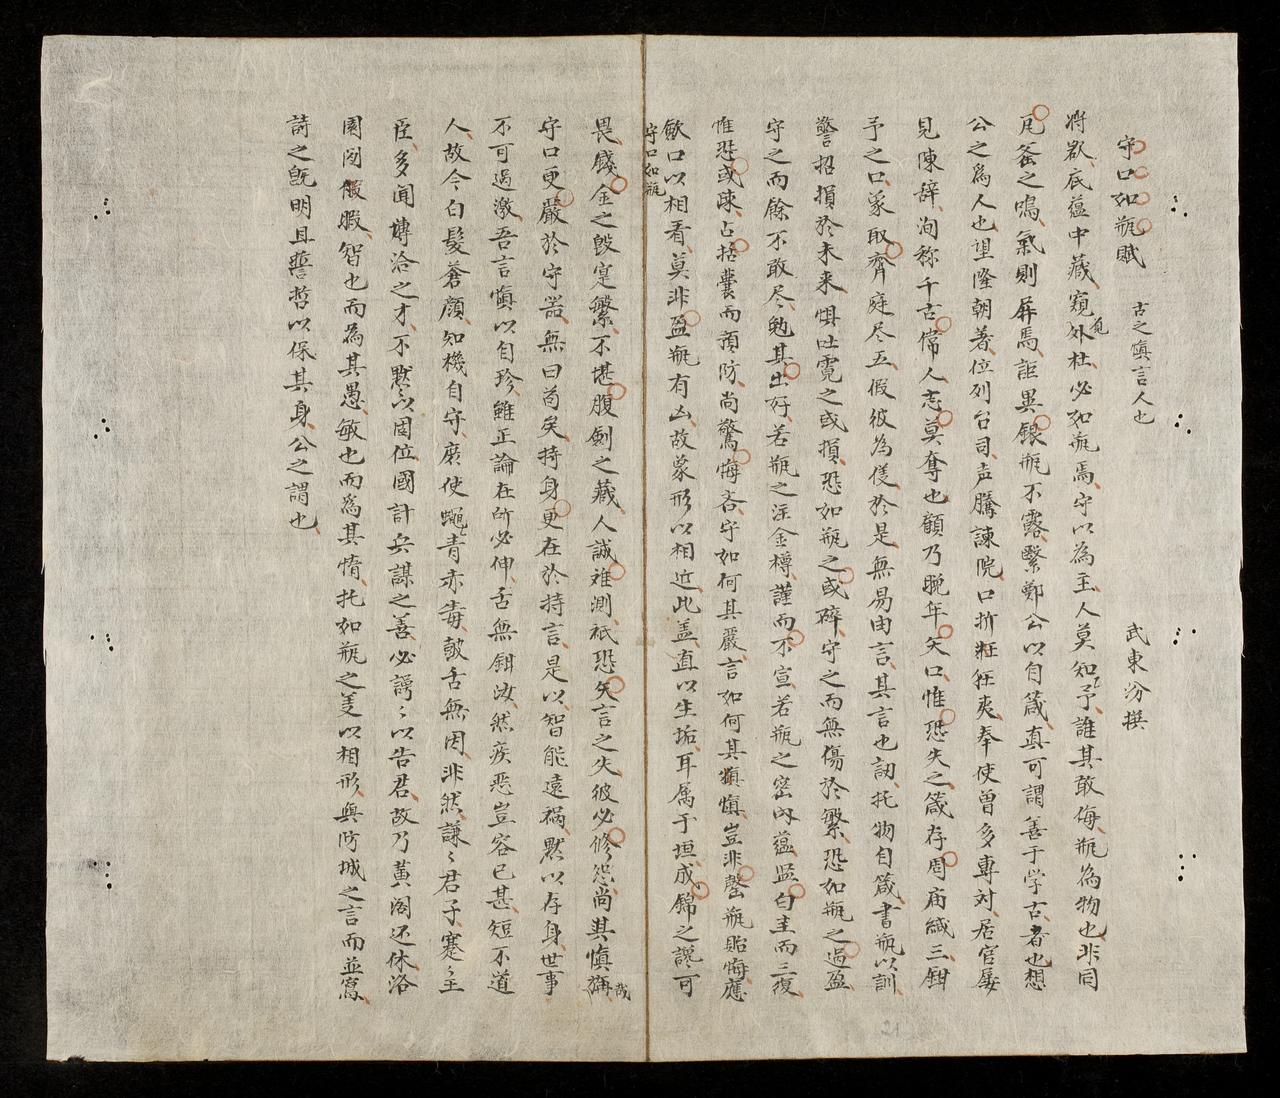 守口如瓶賦 古之慎言人也 武東汾撰
將欲底蘊中藏窺外杜必如瓶焉守以為主人莫知予誰其敢侮瓶為物也非同
瓦釜之鳴氣則屏焉詎異銀瓶不露繄鄭公以自箴真可謂善于学古者也想
公之為人也望隆朝著位列台司声騰諫院口折狂夷奉使曽多專対居官屡
見陳辞洵称千古偉人志莫奪也顧乃晚年矢口惟恐失之箴存周庙緘三鉗
予之口象取齊庭尽五假彼為僅於是無易由言其言也訒托物自箴書瓶以訓
警招損於未来惧吐霓之或損恐如瓶之或碎守之而無傷於繁恐如瓶之過盈
守之而餘不敢尽勉其出好若瓶之注金樽謹而不宣若瓶之密內蘊監白圭而三復
惟恐或疎占括囊而預防尚驚悔吝守如何其嚴言如何其慎豈非罄瓶貽悔應
歛口以相看莫非盈瓶有凶故象形以相近此盖直以生垢耳属于垣成錦之讒可
守口如瓶
畏鑠金之毀寔繁不堪腹劍之藏人誠難測祇恐矢言之失彼必修怨尚其慎旃哉
守口更嚴於守器無曰苟矣持身更在於持言是以智能遠祸黙以存身世事
不可過激吾言慎以自珍雖正論在所必伸舌無鉗汝然疾恶豈容已甚短不道
人故今白髮蒼顔知機自守縻使蝇青赤毒皷舌無因非然謙〻君子蹇〻王
臣多聞博洽之才不黙以固位國計兵謀之善必謌〻以告君故乃黃阁还休洛
園閒暇智也而為其愚敏也而為其惰托如瓶之羙以相形與防城之言而並寫
詩之既明且哲以保其身公之謂也
21